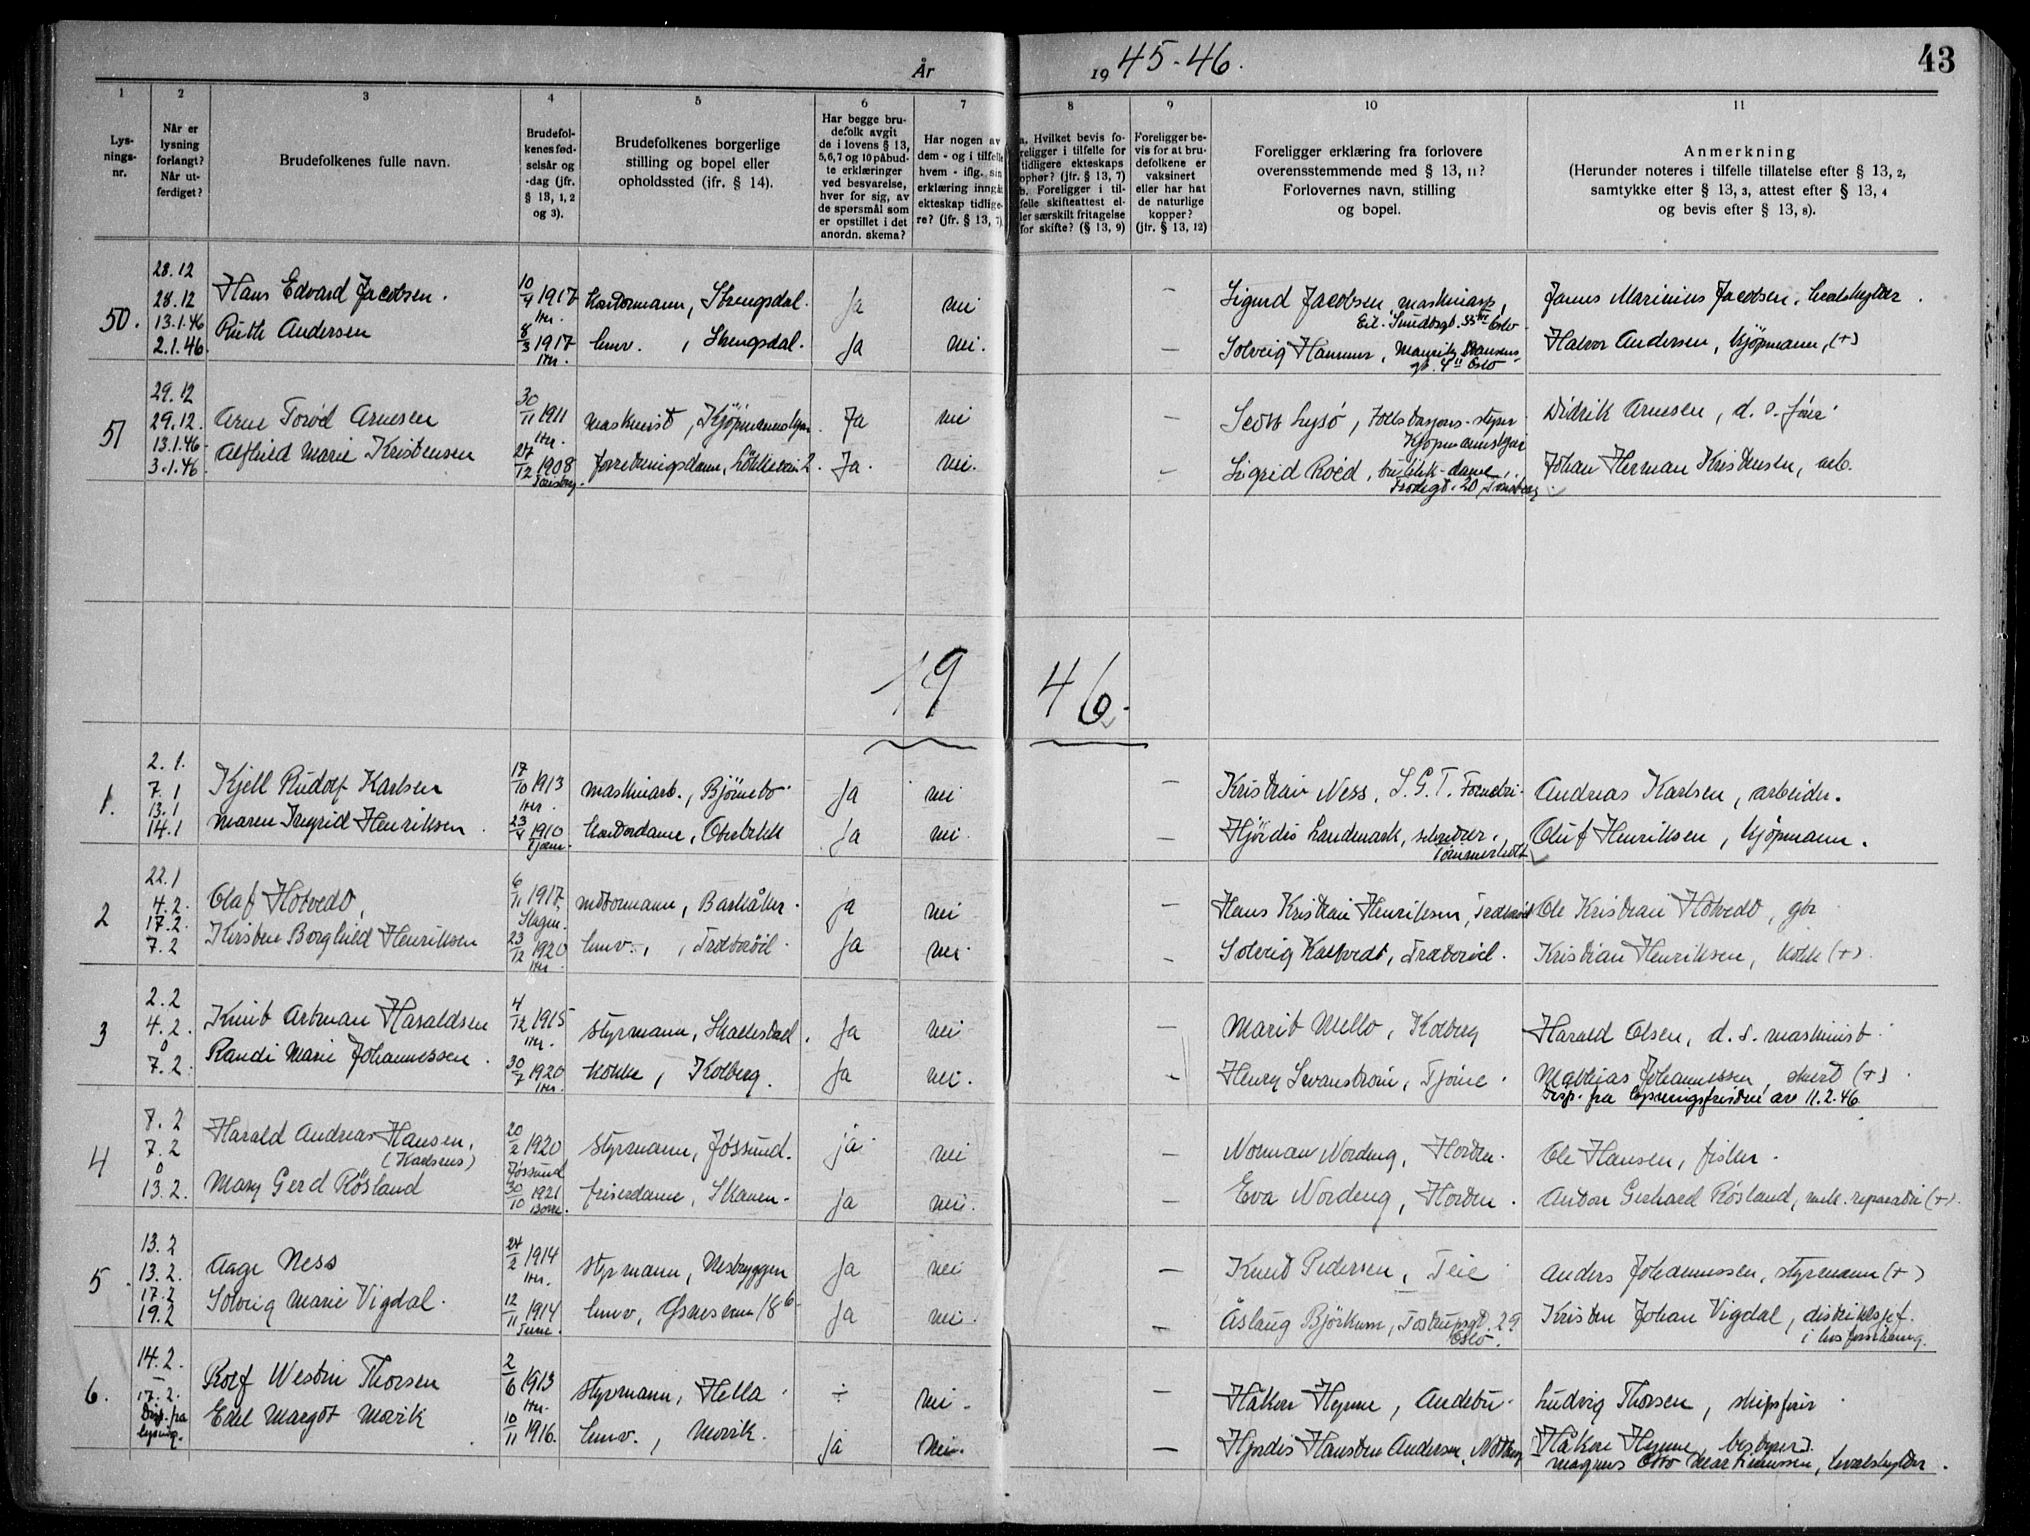 År 1945-46.
43
1 2 3 4 5 6 7 8 9 10 11
Lys-
nings-
nr.
Når er
lysning
forlangt?
Når ut-
ferdiget?
Brudefolkenes fulle navn.
Brudefol-
kenes fød-
selsår og
-dag (jfr.
§ 13, 1, 2
og 3).
Brudefolkenes borgerlige
stilling og bopel eller
opholdssted (jfr. § 14).
Har begge bru-
defolk avgit
de i lovens § 13,
5, 6, 7 og 10 påbud-
te erklæringer
ved besvarelse,
hver for sig, av
de spørsmål som
er opstillet i det
anordn. skema?
Har nogen av
dem - og i tilfelle
hvem - iflg. sin
erklæring inngått
ekteskap tidlige-
re? (jfr. § 13, 7)
a. Hvilket bevis fo-
religger i tilfelle for
tidligere ekteskaps
ophør? (jfr. § 13, 7)
b. Foreligger i til-
felle skifteattest el-
ler særskilt fritagelse
for skifte? (§ 13, 9)
Foreligger be-
vis for at bru-
defolkene er
vaksinert
eller har hat
de naturlige
kopper?
(jfr. § 13, 12)
Foreligger erklæring fra forlovere
overensstemmende med § 13, 11?
Forlovernes navn, stilling
og bopel.
Anmerkning
(Herunder noteres i tilfelle tillatelse efter § 13, 2,
samtykke efter § 13, 3, attest efter § 13, 4
og bevis efter § 13, 8).
50.
28.12
28.12
13.1.46
2.1.46.
Hans Edvard Jacobsen.
Ruth Andersen
10/4 1917
Her.
8/3 1917
Her.
Kontormann, Strengsdal.
husv. , Strengsdal.
Ja nei —
Ja nei. —
Sigurd Jacobsen, maskinasp,
Eil. Sundtsgt. Oslo
Solveig Hammer,
Oslo
James Marinius Jacobsen, hvalskytter.
Halvor Andersen, kjøpmann, (+)
51
29.12
29.12.
13.1.46
3.1.46.
Arne Torød Arnesen
Alfhild Marie Kristensen
30/11 1911
Her.
27/12 1908
Tønsberg.
maskinist, Kjøpmannskjær
forretningsdame,
Ja nei —
Ja. nei. —
Lysø,
Kjøpmannskjær
Sigrid Roed, butikk-dame,
20, Tønsberg
Didrik Arnesen, d.s. fører
Johan Herman Kristensen, arb.
1946.
1.
2.1.
7.1
13.1
14.1
Kjell Rudolf Karlsen
Maren Ingrid Henriksen.
17/10 1913
Her.
23/4 1910
Tjøme.
maskinarb., Bjørnebo
Kontordame, Oterbekk
Ja nei —
Ja nei. —
Kristian Ness, S.G.T.
Hjørdis Landmark, sekretær,
Tømmerholt
Andreas Karlsen, arbeider.
Oluf Henriksen, kjøpmann.
2
22.1
4.2.
17.2.
7.2
Olaf Hotvedt,
Kirsten Borghild Henriksen
6/11 1917
Slagen.
23/12 1920
Her.
motormann, Barkåker.
husv., , Træborød.
ja nei —
Ja nei. -
Hans Kristian Henriksen, Træborød
Solveig Kalkvedt, Træborød.
Ole Kristian Hotvedt, gbr
Kristian Henriksen, kokk (+)
3
2.2
4.2.
0
7.2.
Knut Artman Haraldsen
Randi Marie Johannessen.
4/12 1915
Her.
30/7 1920
Her.
styrmann, Skallestad.
kokke, Kolberg.
Ja nei —
Ja nei. -
Marit Mello, Kolberg
Henry Svanstrøm, Tjøme.
Harald Olsen, d.s. maskinist
Mathias Johannessen, (+)
Disp. fra lysningsfristen av 11.2.46
4
8.2
7.2
0
13.2.
Harald Andreas Hansen,
(Karlsens)
Mary Gerd Røsland
20/2 1920
Jøssund
30/10 1921
Borre.
styrmann, Jøssund.
frisørdame, Skauen.
ja nei -
Ja nei. -
Norman Nordeng, Horten.
Eva Nordeng, Horten.
Ole Hansen, fisker.
Anton Gerhard Røsland, mek. reparatør (+).
5.
13.2
13.2.
17.2
19.2
Aage Ness
Solveig Marie Vigdal.
24/2 1914
Her.
12/11 1914
styrmann, Nesbryggen
husv, 18b
Ja nei —
Ja nei. —
Knut Pedersen, Teie
Åslaug Bjørkum, Tostrupsgt. 29
Oslo.
Anders Johannessen, styrmann (+)
Kristen Johan Vigdal, distriktssjef.
6.
14.2.
—
17.2.
Disp. fra
lysning.
Rolf Westin Thorsen
Edel Margot Mørik
2/6 1913
Her.
10/11 1916.
styrmann, Hella.
husv., Mørik.
÷ nei. —
Ja nei. —
Håkon Hynne, Andebu.
Hjørdis Hansten Andersen, Nøtterøy
Ludvig Thorsen, skipsfører
Håkon Hynne, bestyrer.
Magnus Otto Markussen, hvalskytter.